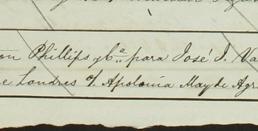 Phillips y Ca. para José I. Va
e Londres o/ Apolonia May de Agr